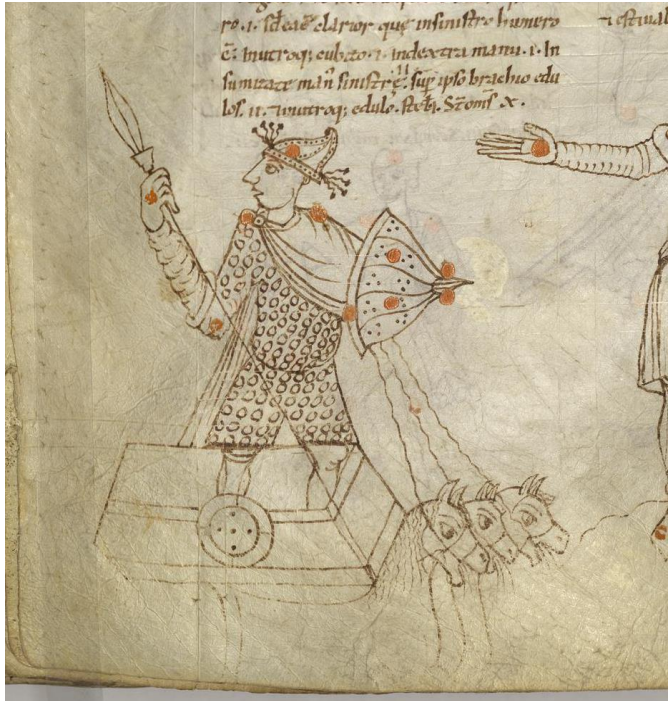 ro .i. Sed ea ē clarior que in sinistro humero
ē. In utroq; cubito .i. in dextra manu .i. In
sumitate man sinistrę sup ipso brachio edu
los .ii. In utroq; edulo. stell. S omis x .
⁊ estiual